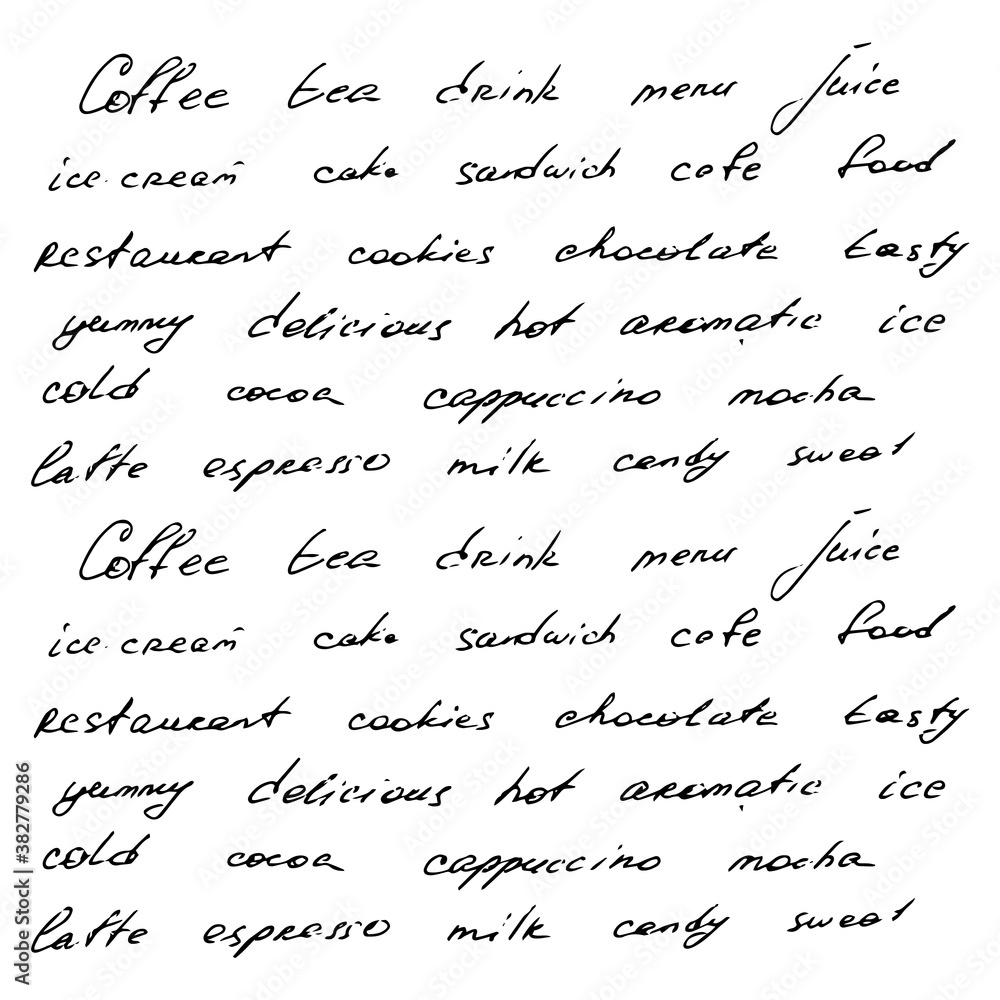 Coffee tea drink menu Juice
ice cream cake sandwich cafe food
restaurant cookies chocolate tasty
yummy delicious hot aromatic ice
cold cocoa cappuccino mocha
latte espresso milk candy sweet
Coffee tea drink menu Juice
ice cream cake sandwich cafe food
restaurant cookies chocolate tasty
yummy delicious hot aromatic ice
cold cocoa cappuccino mocha
latte espresso milk candy sweet
Adobe Stock | #382779286